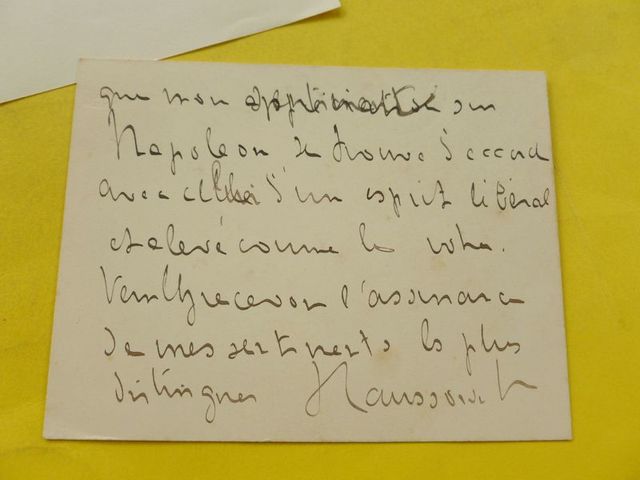 que mon appréciation sur
Napoleon se trouve d'accord
avec celle d'un esprit libéral
et elevé comme le votre.
Veuillez recevoir l'assurance
de mes sentiments les plus
distingués